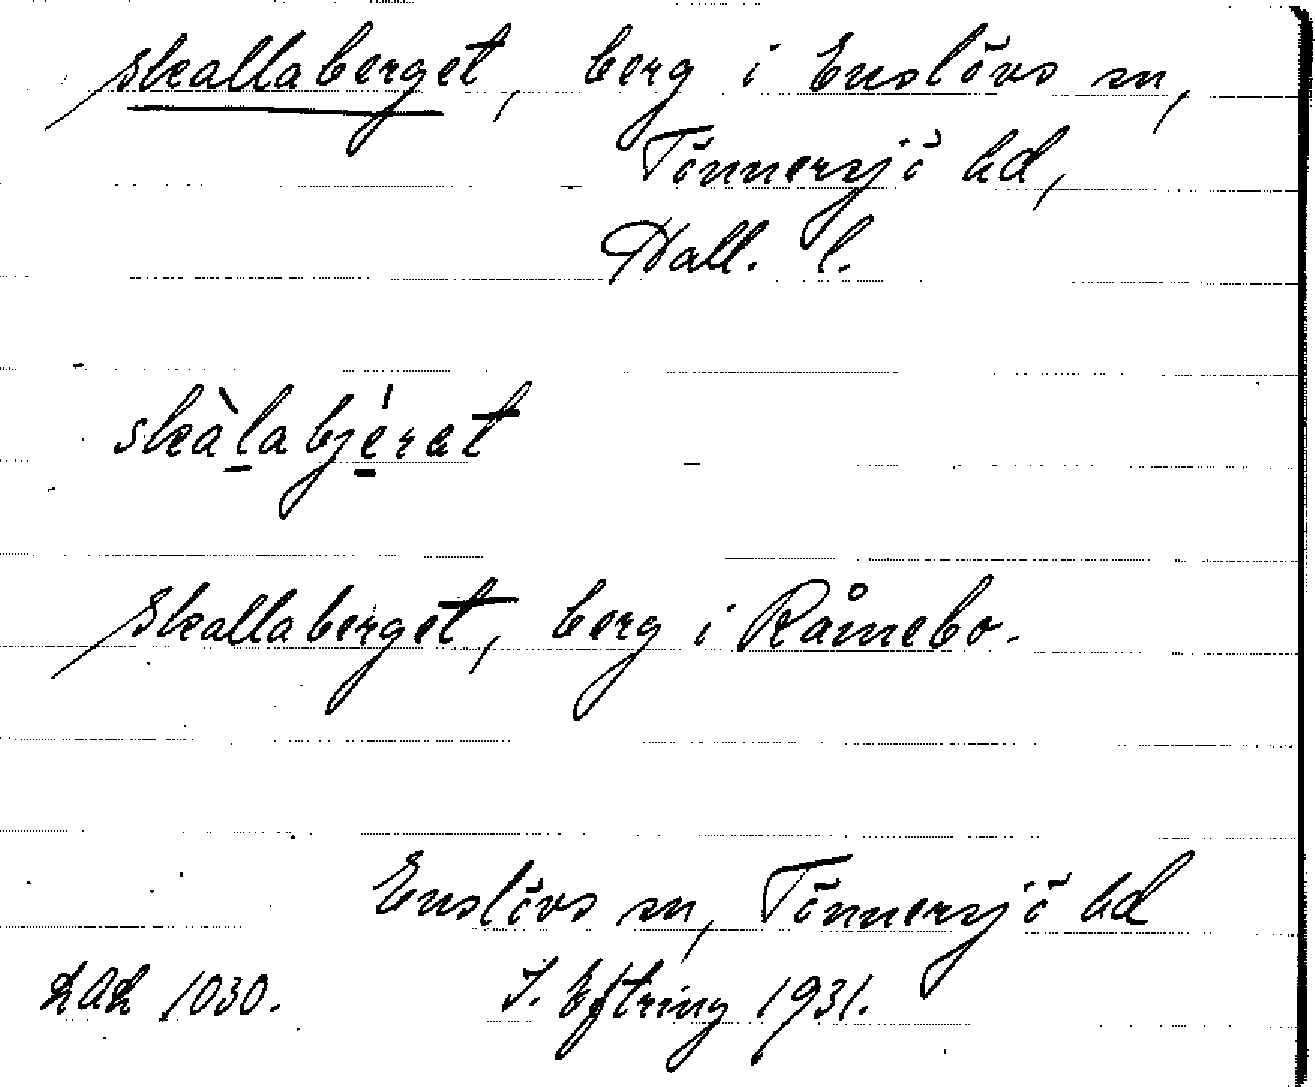 Skallaberget, berg i Enslövs sn,
Tönnersjö hd,
Hall. l.
skàlabjérat
Skallaberget, berg i Råmebo.
Enslövs sn, Tönnersjö hd
LAL 1030. J. Eftring 1931.